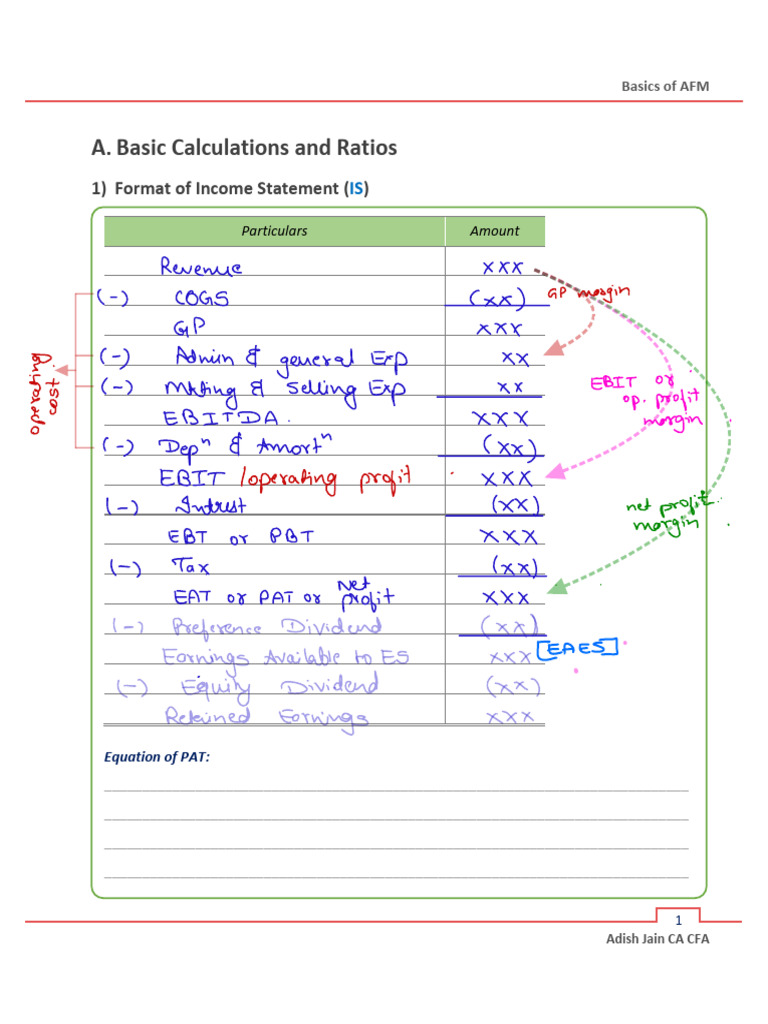 Basics of AFM
A. Basic Calculations and Ratios
1) Format of Income Statement (IS)
Particulars Amount
Revenue xxx
(-) COGS (xx) GP margin
GP xxx
(-) Admin & general Exp xx
(-) Mkting & Selling Exp xx
EBITDA. xxx
(-) Depⁿ & Amortⁿ (xx)
EBIT /operating profit xxx
(-) Intrest (xx)
EBT or PBT xxx
(-) Tax (xx)
EAT or PAT or Net profit xxx
(-) Preference Dividend (xx)
Earnings Available to ES xxx [EAES]
(-) Equity Dividend (xx)
Retained Earnings xxx
operating
cost
EBIT or
op. profit
margin
net profit
margin
Equation of PAT:
1
Adish Jain CA CFA